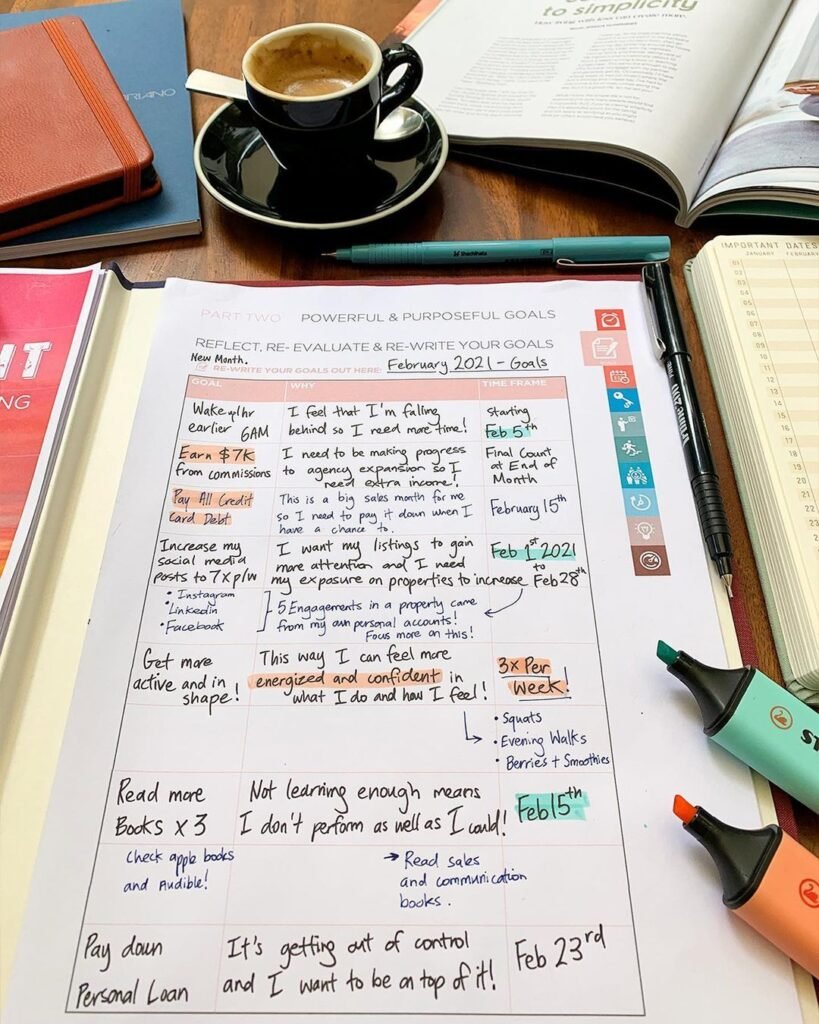 to simplicity
RIANO
IMPORTANT DATES
JANUARY FEBRUARY
PART TWO POWERFUL & PURPOSEFUL GOALS
REFLECT, RE- EVALUATE & RE-WRITE YOUR GOALS
New Month.
RE-WRITE YOUR GOALS OUT HERE: February 2021 - Goals
GOAL WHY TIME FRAME
Wake up 1hr
earlier 6AM
I feel that I'm falling
behind so I need more time!
Starting
Feb 5th
Earn $7K
from commissions
I need to be making progress
to agency expansion so I
need extra income!
Final Count
at End of
Month
Pay All Credit
Card Debt
This is a big sales month for me
so I need to pay it down when I
have a chance to.
February 15th
Increase my
social media
posts to 7x p/w
I want my listings to gain
more attention and I need
my exposure on properties to increase
Feb 1st 2021
to
Feb 28th
• Instagram
• Linkedin
• Facebook
5 Engagements in a property came
from my own personal accounts!
Focus more on this!
Get more
active and in
shape!
This way I can feel more
energized and confident in
what I do and how I feel!
3x Per
Week!
• Squats
• Evening Walks
• Berries + Smoothies
Read more
Books x 3
Not learning enough means
I don't perform as well as I could!
Feb 15th
Check apple books
and Audible!
→ Read sales
and communication
books.
Pay down
Personal Loan
It's getting out of control
and I want to be on top of it!
Feb 23rd